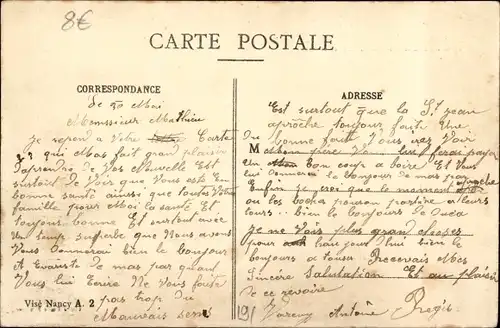 8€
CARTE POSTALE
CORRESPONDANCE
Le 20 Mai
Monssieur Mathieu
Je repond a votre Carte
qui Mas fait grand plaisir
d'aprendre de Vos Nouvelle Est
surtout de Voir que Vous este En
bonne santé ainsi que toutes Votre
famille pour Moi la santé Et
toujours bonne Et surtout avec
un temp superbe que Nous avons
Vous donnerai bien le bonjour
A Evariste de mas par quant
Vous lui Ecrire Ne Vous faite
pas trop du
Mauvais sens
Visé Nancy A. 2
ADRESSE
Est surtout que la St jean
aproche toujour faite Une
du bonne four Vous irez Voir
M
un bon coup a boire Et Vous
lui donnerai le bonjour de mas par
Enfin je croi que le moment aproche
ou les boches pouron partire a leurs
tours bien le bonjours de
je ne Vous plus grand choses
pour aujourdhui bien le
bonjours a tousse Recevais Mes
Sincère Salutation Et au plaisir
de ce revoire
191
Antoine Regis